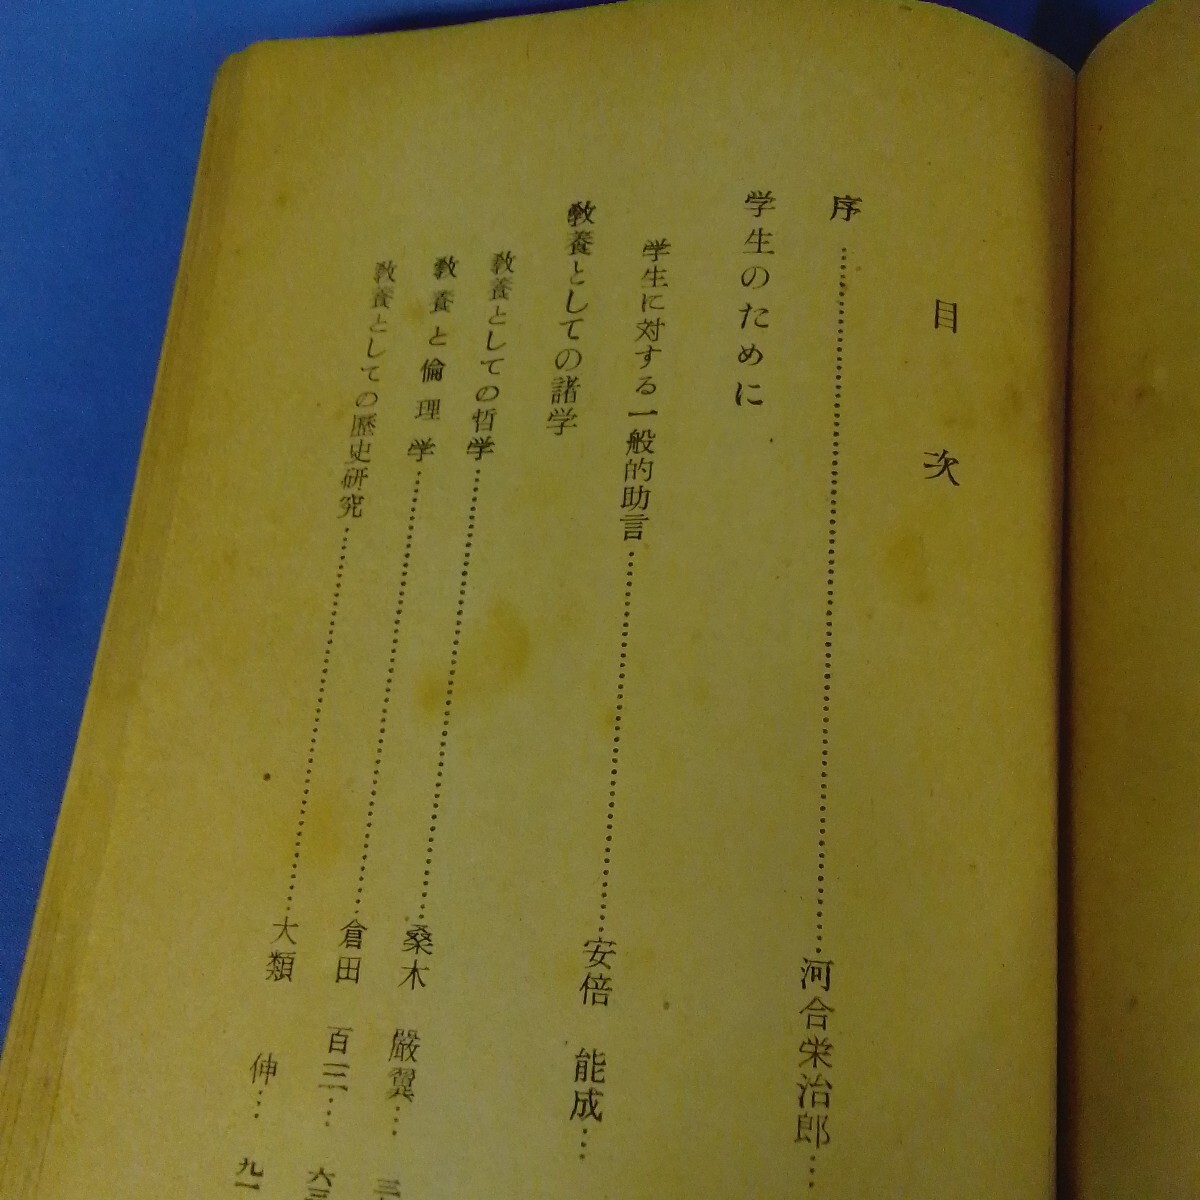 目次
序……………河合栄治郎…
学生のために
学生に対する一般的助言……………安倍能成…
教養としての諸学
教養としての哲学……………桑木嚴翼…
教養と倫理学……………倉田百三…六三
教養としての歴史研究……………大類伸…九一